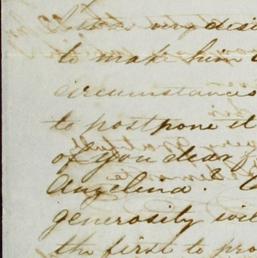 very desi
to make him
circumstances
to postpone it
of you dear
Angelina!
generosity wil
the first to pro